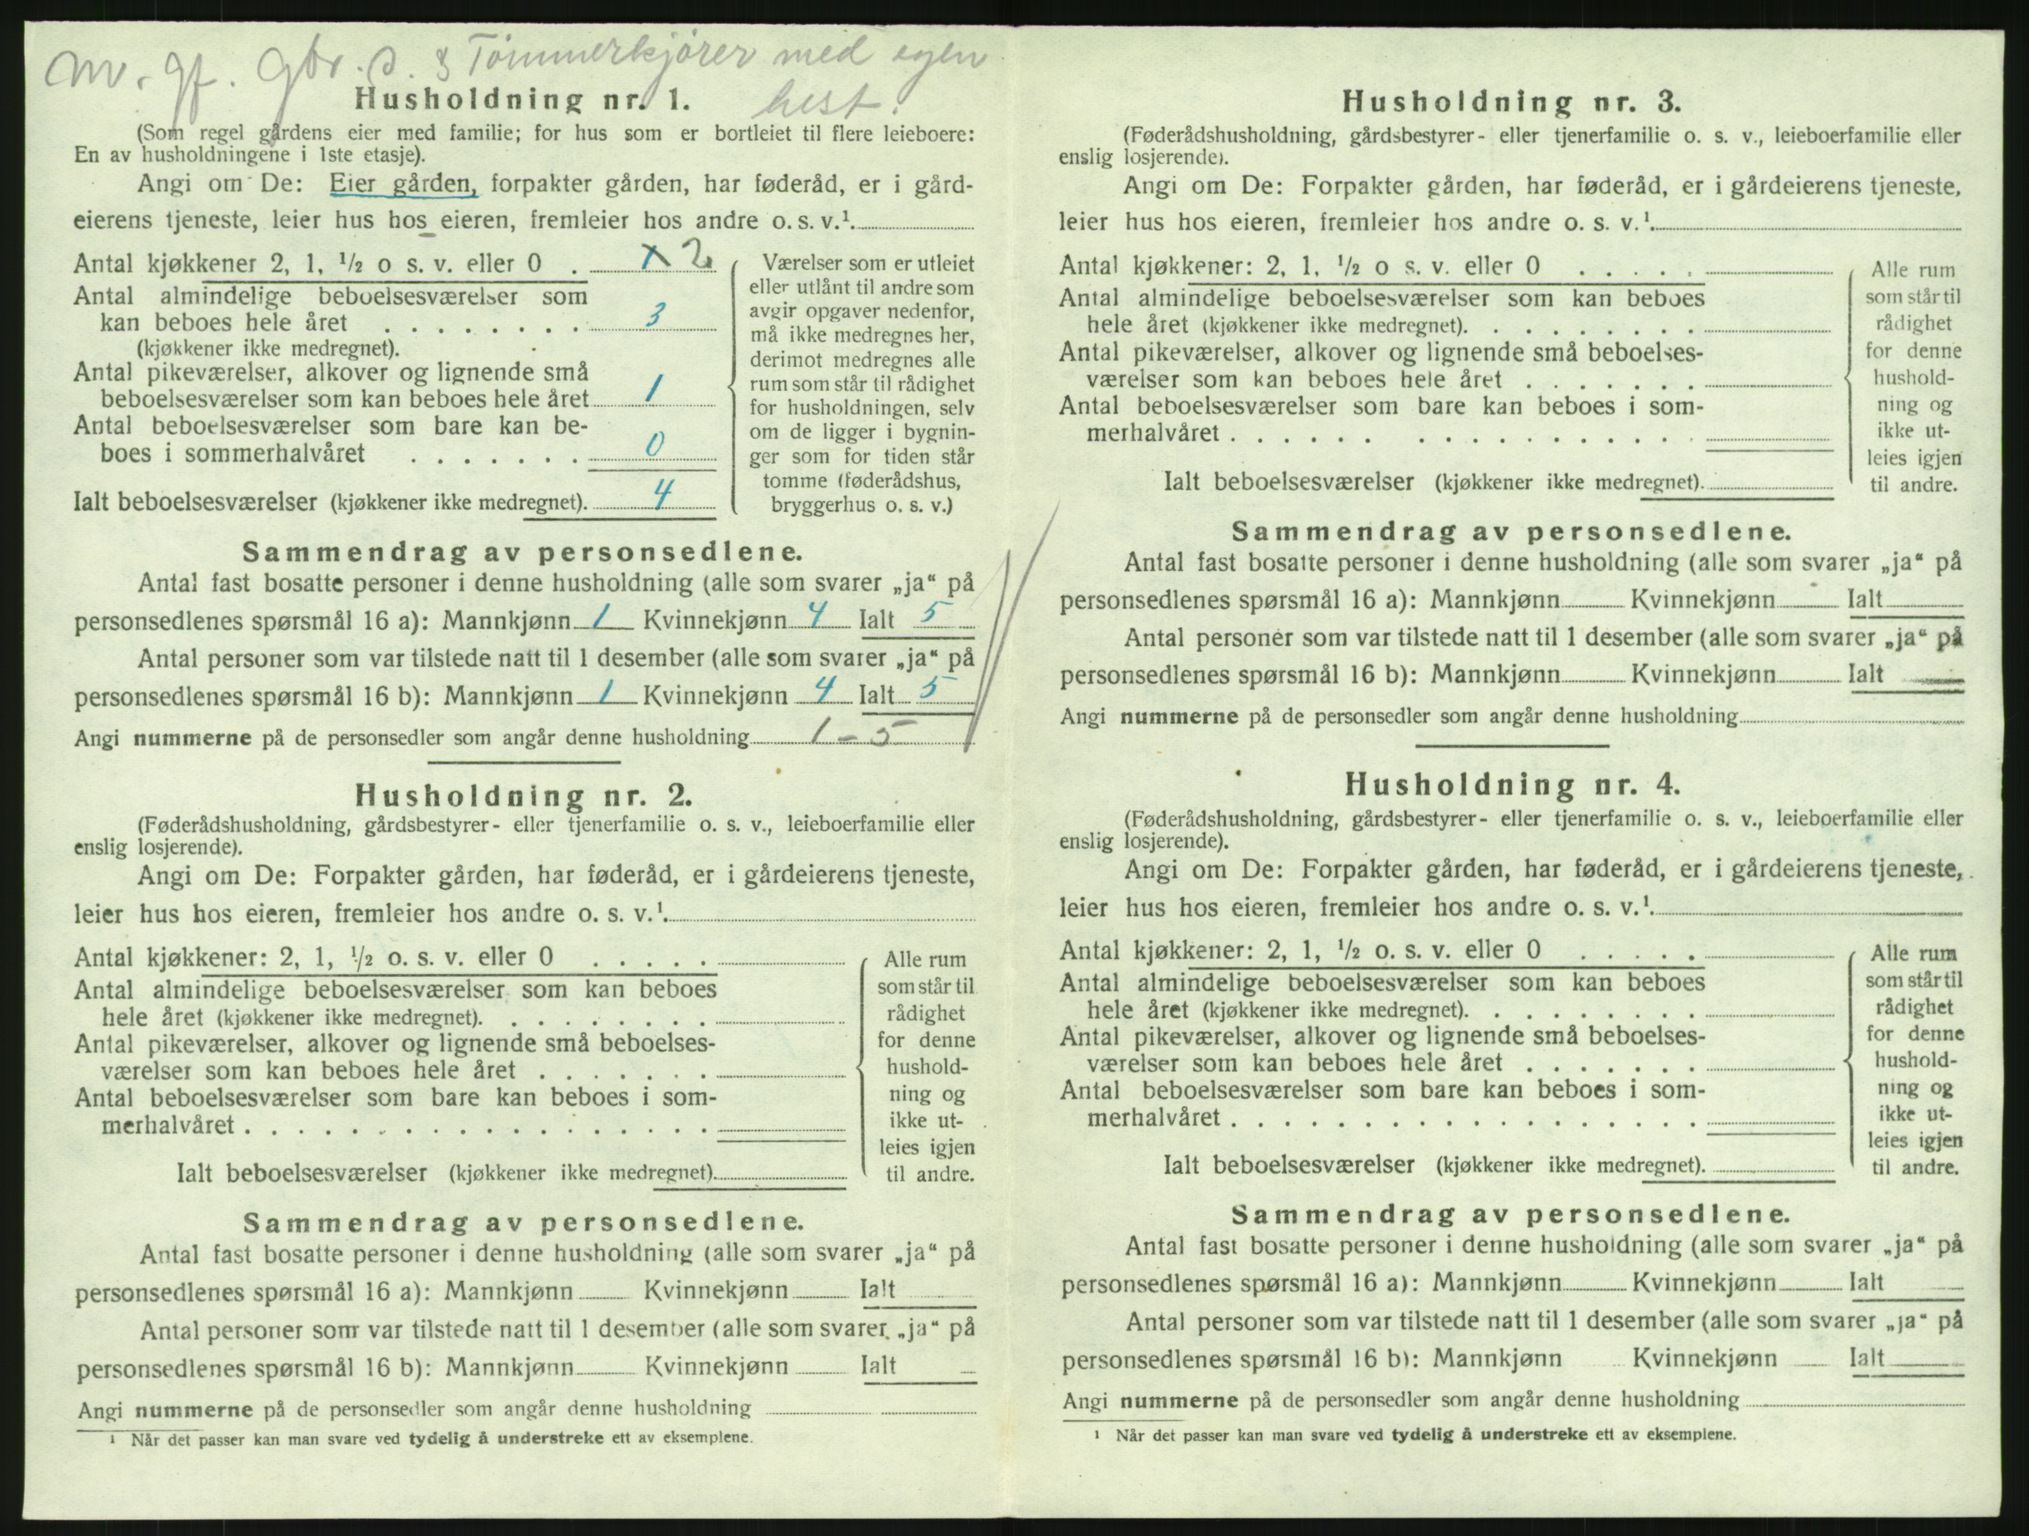 m. gf. gbr. s. & Tømmerkjører med egen
hest.
Husholdning nr. 1.
(Som regel gårdens eier med familie; for hus som er bortleiet til flere leieboere:
En av husholdningene i 1ste etasje).
Angi om De: Eier gården, forpakter gården, har føderåd, er i gård-
eierens tjeneste, leier hus hos eieren, fremleier hos andre o. s. v.¹.
Antal kjøkkener 2, 1, ½ o s. v. eller 0 . 1 2
Antal almindelige beboelsesværelser som
kan beboes hele året . . . . . . . . 3
(kjøkkener ikke medregnet).
Antal pikeværelser, alkover og lignende små
beboelsesværelser som kan beboes hele året 1
Antal beboelsesværelser som bare kan be-
boes i sommerhalvåret . . . . . . . 0
Ialt beboelsesværelser (kjøkkener ikke medregnet). 4
Værelser som er utleiet
eller utlånt til andre som
avgir opgaver nedenfor,
må ikke medregnes her,
derimot medregnes alle
rum som står til rådighet
for husholdningen, selv
om de ligger i bygnin-
ger som for tiden står
tomme (føderådshus,
bryggerhus o. s. v.)
Sammendrag av personsedlene.
Antal fast bosatte personer i denne husholdning (alle som svarer „ja“ på
personsedlenes spørsmål 16 a): Mannkjønn 1 Kvinnekjønn 4 Ialt 5
Antal personer som var tilstede natt til 1 desember (alle som svarer „ja“ på
personsedlenes spørsmål 16 b): Mannkjønn 1 Kvinnekjønn 4 Ialt 5
Angi nummerne på de personsedler som angår denne husholdning 1 - 5
Husholdning nr. 2.
(Føderådshusholdning, gårdsbestyrer- eller tjenerfamilie o. s. v., leieboerfamilie eller
enslig losjerende).
Angi om De: Forpakter gården, har føderåd, er i gårdeierens tjeneste,
leier hus hos eieren, fremleier hos andre o. s. v.¹.
Antal kjøkkener: 2, 1, ½ o. s. v. eller 0 . . . . .
Antal almindelige beboelsesværelser som kan beboes
hele året (kjøkkener ikke medregnet). . . . . . . . .
Antal pikeværelser, alkover og lignende små beboelses-
værelser som kan beboes hele året . . . . . . .
Antal beboelsesværelser som bare kan beboes i som-
merhalvåret . . . . . . . . . . . . . . . . . .
Ialt beboelsesværelser (kjøkkener ikke medregnet).
Alle rum
som står til
rådighet
for denne
hushold-
ning og
ikke ut-
leies igjen
til andre.
Sammendrag av personsedlene.
Antal fast bosatte personer i denne husholdning (alle som svarer „ja“ på
personsedlenes spørsmål 16 a): Mannkjønn Kvinnekjønn Ialt
Antal personer som var tilstede natt til 1 desember (alle som svarer „ja“ på
personsedlenes spørsmål 16 b): Mannkjønn Kvinnekjønn Ialt
Angi nummerne på de personsedler som angår denne husholdning
¹ Når det passer kan man svare ved tydelig å understreke ett av eksemplene.
Husholdning nr. 3.
(Føderådshusholdning, gårdsbestyrer- eller tjenerfamilie o. s. v., leieboerfamilie eller
enslig losjerende).
Angi om De: Forpakter gården, har føderåd, er i gårdeierens tjeneste,
leier hus hos eieren, fremleier hos andre o. s. v.¹.
Antal kjøkkener: 2, 1, ½ o s. v. eller 0 . . . . .
Antal almindelige beboelsesværelser som kan beboes
hele året (kjøkkener ikke medregnet). . . . . . . . .
Antal pikeværelser, alkover og lignende små beboelses-
værelser som kan beboes hele året . . . . . . .
Antal beboelsesværelser som bare kan beboes i som-
merhalvåret . . . . . . . . . . . . . . . . .
Ialt beboelsesværelser (kjøkkener ikke medregnet).
Alle rum
som står til
rådighet
for denne
hushold-
ning og
ikke ut-
leies igjen
til andre.
Sammendrag av personsedlene.
Antal fast bosatte personer i denne husholdning (alle som svarer „ja“ på
personsedlenes spørsmål 16 a): Mannkjønn Kvinnekjønn Ialt
Antal personer som var tilstede natt til 1 desember (alle som svarer „ja“ på
personsedlenes spørsmål 16 b): Mannkjønn Kvinnekjønn Ialt
Angi nummerne på de personsedler som angår denne husholdning
Husholdning nr. 4.
(Føderådshusholdning, gårdsbestyrer- eller tjenerfamilie o. s. v., leieboerfamilie eller
enslig losjerende).
Angi om De: Forpakter gården, har føderåd, er i gårdeierens tjeneste,
leier hus hos eieren, fremleier hos andre o. s. v.¹.
Antal kjøkkener: 2, 1, ½ o. s. v. eller 0 . . . . .
Antal almindelige beboelsesværelser som kan beboes
hele året (kjøkkener ikke medregnet). . . . . . . . .
Antal pikeværelser, alkover og lignende små beboelses-
værelser som kan beboes hele året . . . . . . .
Antal beboelsesværelser som bare kan beboes i som-
merhalvåret . . . . . . . . . . . . . . . . . .
Ialt beboelsesværelser (kjøkkener ikke medregnet).
Alle rum
som står til
rådighet
for denne
hushold-
ning og
ikke ut-
leies igjen
til andre.
Sammendrag av personsedlene.
Antal fast bosatte personer i denne husholdning (alle som svarer „ja“ på
personsedlenes spørsmål 16 a): Mannkjønn Kvinnekjønn Ialt
Antal personer som var tilstede natt til 1 desember (alle som svarer „ja“ på
personsedlenes spørsmål 16 b): Mannkjønn Kvinnekjønn Ialt
Angi nummerne på de personsedler som angår denne husholdning
¹ Når det passer kan man svare ved tydelig å understreke ett av eksemplene.